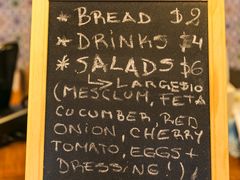 * BREAD $2
* DRINKS $4
* SALADS $6
↳ LARGE $10
(MESCLUM, FETA
CUCUMBER, RED
ONION, CHERRY
TOMATO, EGGS +
DRESSING!)